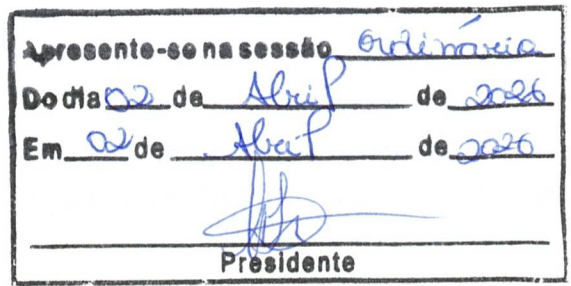 Apresente-se na sessão Ordinária
Do dia 02 de Abril de 2026
Em 02 de Abril de 2026
Presidente